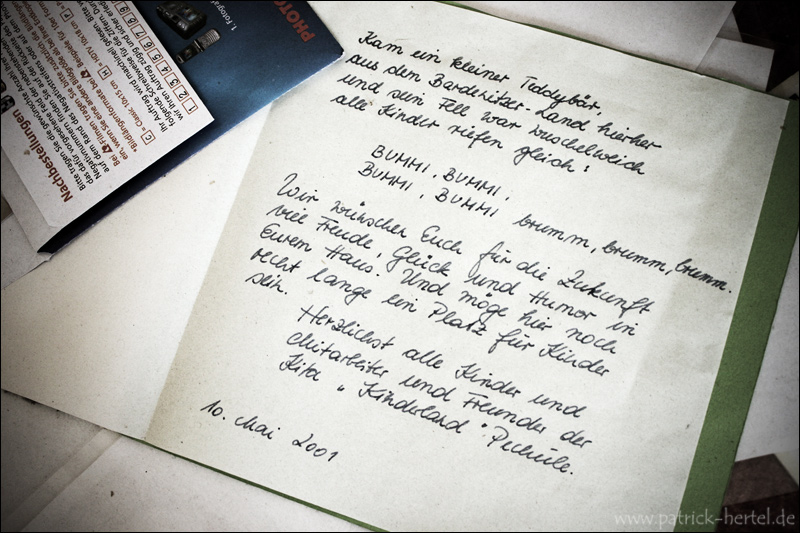 Kam ein kleiner Teddybär,
aus dem Bardenitzer-Land hierher
und sein Fell war wuschelweich
alle Kinder riefen gleich:
BUMMI, BUMMI,
BUMMI, BUMMI brumm, brumm, brumm.
Wir wünschen Euch für die Zukunft
viel Freude, Glück und Humor in
Eurem Haus. Und möge hier noch
recht lange ein Platz für Kinder
sein.
Herzlichst alle Kinder und
Mitarbeiter und Freunde der
Kita "Kinderland" Pechüle.
10. Mai 2001
PHOTO
1. Fotograf
Nachbestellungen
Bitte tragen Sie die gewünschte Anzahl
auf dem Rand des Negativ
www.patrick-hertel.de